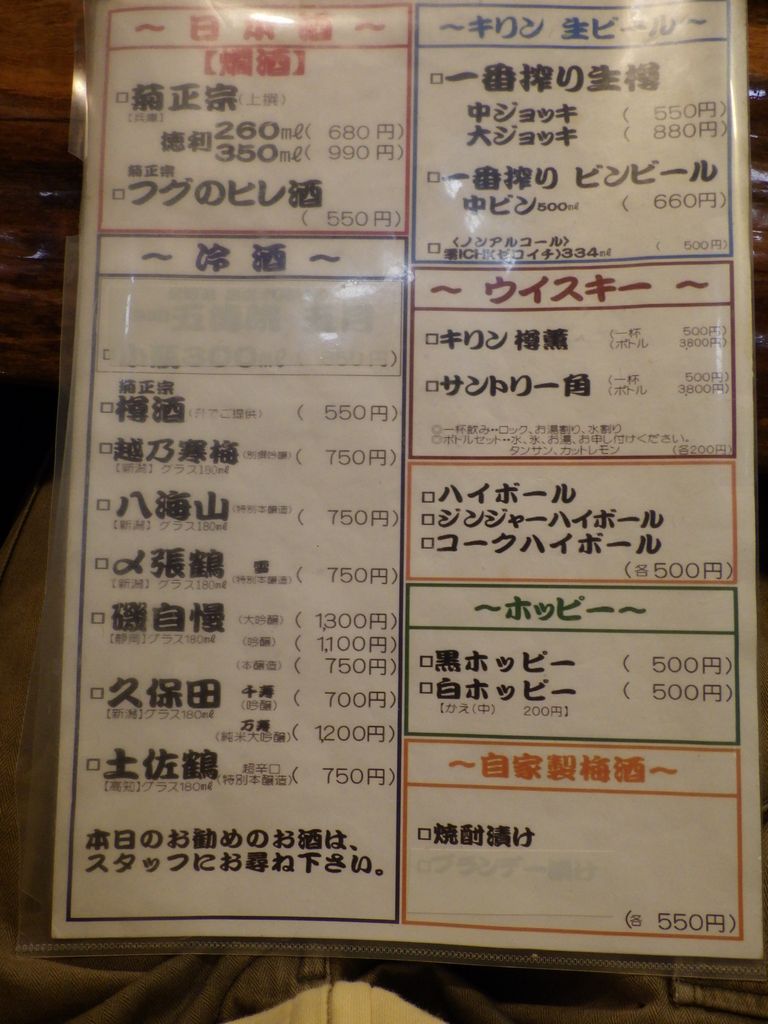 ～ 日本酒 ～
【燗酒】
□菊正宗(上撰)
【兵庫】
徳利260㎖( 680円)
350㎖( 990円)
菊正宗
□フグのヒレ酒
( 550円)
～ 冷 酒 ～
小瓶300㎖
菊正宗
□樽酒 ( 550円)
□越乃寒梅(別撰吟醸) ( 750円)
【新潟】グラス180㎖
□八海山(特別本醸造) ( 750円)
【新潟】グラス180㎖
□〆張鶴 雪 (特別本醸造) ( 750円)
【新潟】グラス180㎖
□磯自慢 (大吟醸) ( 1,300円)
【静岡】グラス180㎖ (吟醸) ( 1,100円)
(本醸造) ( 750円)
□久保田 千寿 (吟醸) ( 700円)
【新潟】グラス180㎖
万寿 (純米大吟醸) ( 1,200円)
□土佐鶴 超辛口 (特別本醸造) ( 750円)
【高知】グラス180㎖
本日のお勧めのお酒は、
スタッフにお尋ね下さい。
～キリン 生ビール～
□一番搾り生樽
中ジョッキ ( 550円)
大ジョッキ ( 880円)
□一番搾り ビンビール
中ビン500㎖ ( 660円)
□〈ノンアルコール〉
零ICHI(ゼロイチ)334㎖ ( 500円)
～ ウイスキー ～
□キリン 樽薫 (一杯 500円)
(ボトル 3,800円)
□サントリー角 (一杯 500円)
(ボトル 3,800円)
◎一杯飲み‥ロック、お湯割り、水割り
◎ボトルセット‥水、氷、お湯、お申し付けください。
タンサン、カットレモン (各200円)
□ハイボール
□ジンジャーハイボール
□コークハイボール
(各500円)
～ホッピー～
□黒ホッピー ( 500円)
□白ホッピー ( 500円)
【かえ(中) 200円】
～自家製梅酒～
□焼酎漬け
□ブランデー漬け
(各 550円)